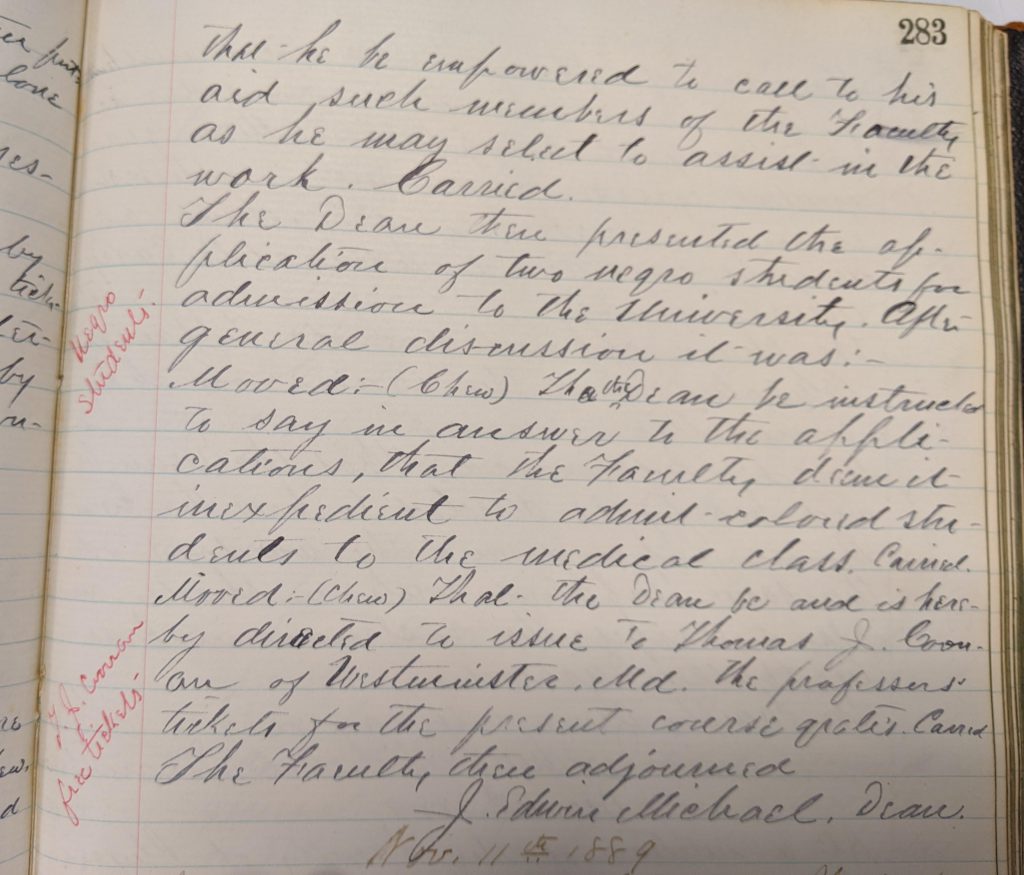 283
that he be empowered to call to his
aid such members of the Faculty
as he may select to assist in the
work. Carried.
The Dean then presented the ap-
plication of two negro students for
admission to the University. After
general discussion it was:-
Negro
students.
Moved:- (Chew) That the Dean be instructed
to say in answer to the appli-
cations, that the Faculty deem it
inexpedient to admit colored stu-
dents to the medical class. Carried.
Moved:- (Chew) That the Dean be and is here-
by directed to issue to Thomas J. Coon-
an of Westminster, Md. the professors'
tickets for the present course gratis. Carried
T. J. Coonan
free tickets.
The Faculty then adjourned
J. Edwin Michael, Dean.
Nov. 11th 1889